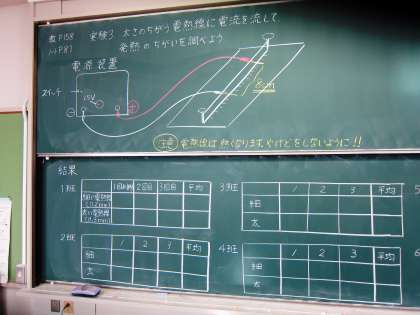 教P158 実験3. 太さのちがう電熱線に電流を流して、
P.87 発熱のちがいを調べよう
電源装置
スイッチ
8cm
⊖ ⊕
注意 電熱線は熱くなります。やけどをしないように!!
結果
1班 1回目 2回目 3回目 平均
細い電熱線
(0.2mm)
太い電熱線
2班 1 2 3 平均
細
太
3班 1 2 3 平均
細
太
4班 1 2 3 平均
細
太